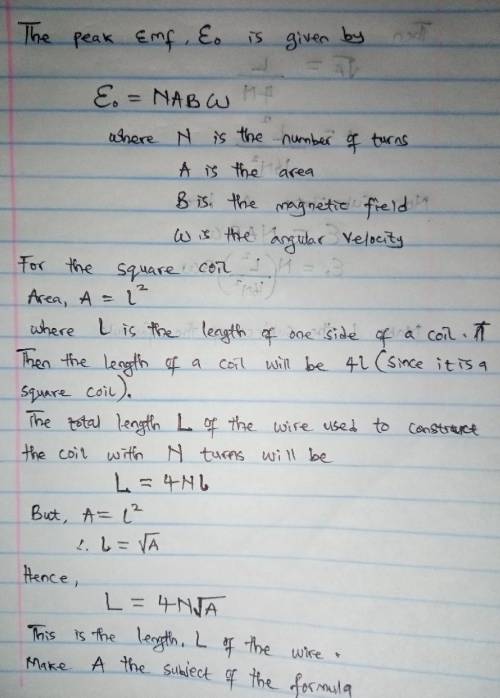 The peak Emf, Ɛ₀ is given by
Ɛ₀ = NABω
where N is the number of turns
A is the area
B is the magnetic field
ω is the angular velocity
For the square coil
Area, A = l²
where l is the length of one side of a coil.
Then the length of a coil will be 4l (Since it is a
square coil).
The total length L of the wire used to construct
the coil with N turns will be
L = 4Nl
But, A = l²
∴ l = √A
Hence,
L = 4N√A
This is the length, L of the wire.
Make A the subject of the formula